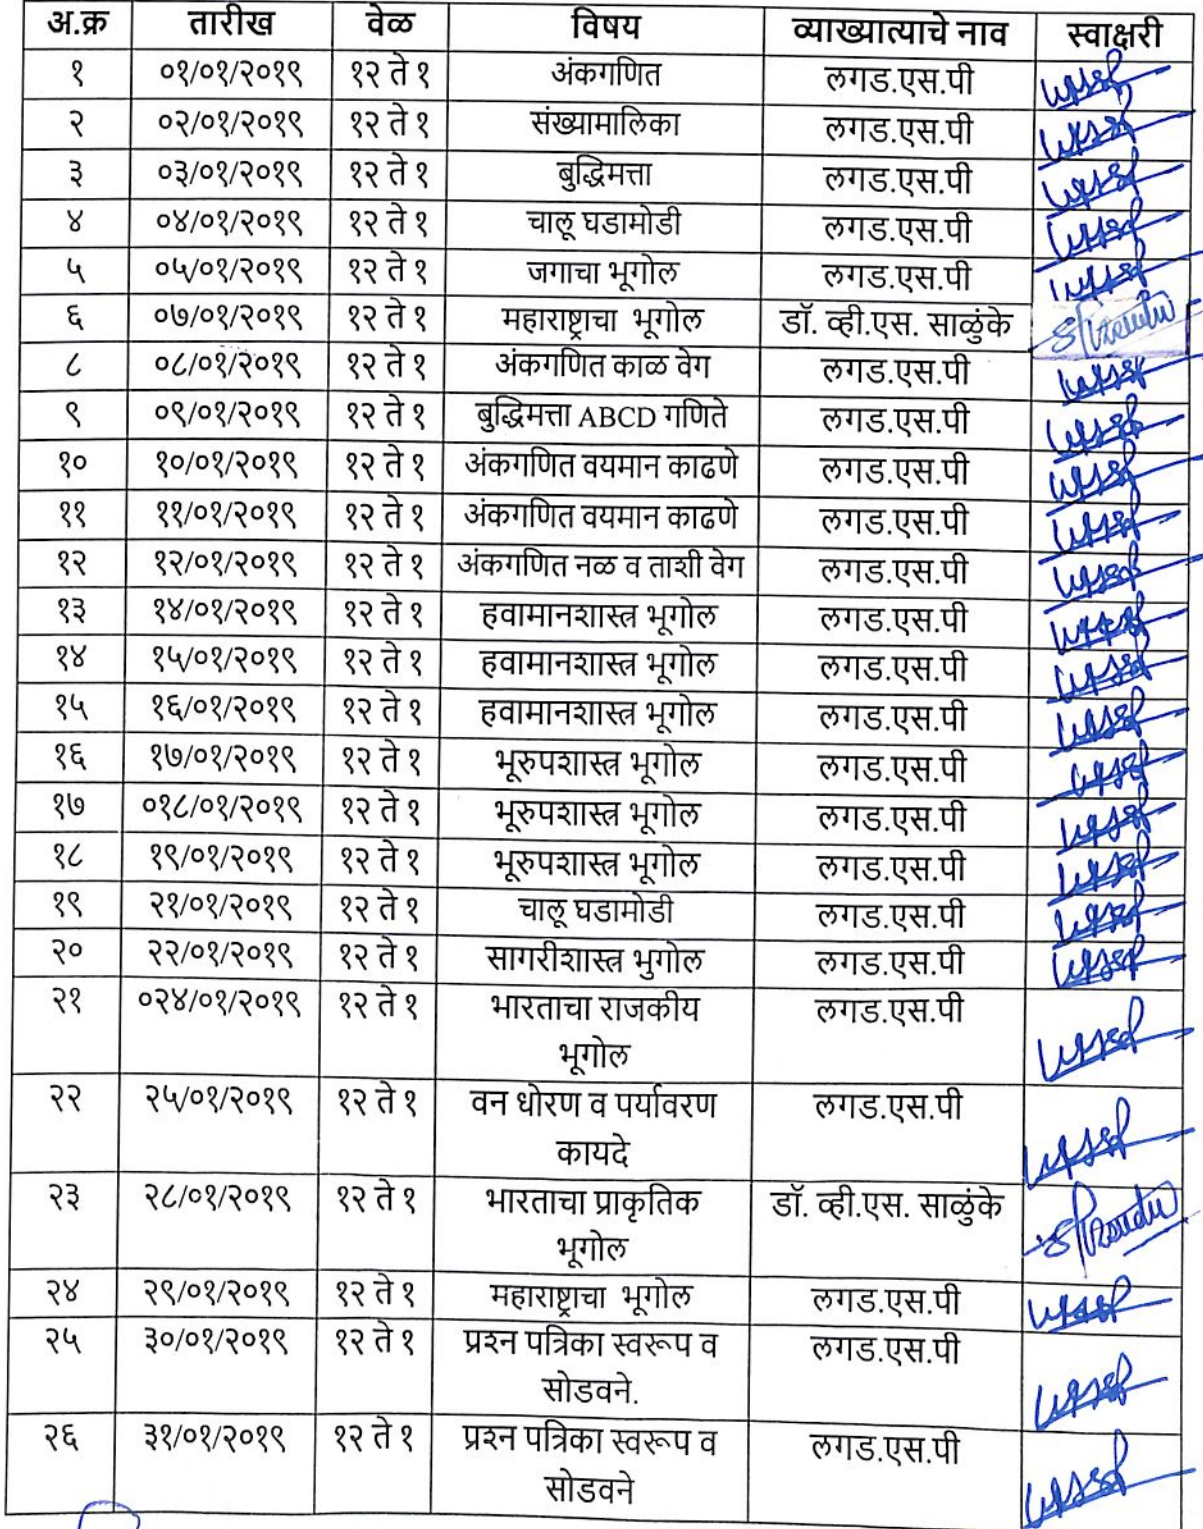 अ.क्र तारीख वेळ विषय व्याख्यात्याचे नाव स्वाक्षरी
१ ०१/०१/२०१९ १२ ते १ अंकगणित लगड.एस.पी
२ ०२/०१/२०१९ १२ ते १ संख्यामालिका लगड.एस.पी
३ ०३/०१/२०१९ १२ ते १ बुद्धिमत्ता लगड.एस.पी
४ ०४/०१/२०१९ १२ ते १ चालू घडामोडी लगड.एस.पी
५ ०५/०१/२०१९ १२ ते १ जगाचा भूगोल लगड.एस.पी
६ ०७/०१/२०१९ १२ ते १ महाराष्ट्राचा भूगोल डॉ. व्ही.एस. साळुंके
८ ०८/०१/२०१९ १२ ते १ अंकगणित काळ वेग लगड.एस.पी
९ ०९/०१/२०१९ १२ ते १ बुद्धिमत्ता ABCD गणिते लगड.एस.पी
१० १०/०१/२०१९ १२ ते १ अंकगणित वयमान काढणे लगड.एस.पी
११ ११/०१/२०१९ १२ ते १ अंकगणित वयमान काढणे लगड.एस.पी
१२ १२/०१/२०१९ १२ ते १ अंकगणित नळ व ताशी वेग लगड.एस.पी
१३ १४/०१/२०१९ १२ ते १ हवामानशास्त्र भूगोल लगड.एस.पी
१४ १५/०१/२०१९ १२ ते १ हवामानशास्त्र भूगोल लगड.एस.पी
१५ १६/०१/२०१९ १२ ते १ हवामानशास्त्र भूगोल लगड.एस.पी
१६ १७/०१/२०१९ १२ ते १ भूरुपशास्त्र भूगोल लगड.एस.पी
१७ ०१८/०१/२०१९ १२ ते १ भूरुपशास्त्र भूगोल लगड.एस.पी
१८ १९/०१/२०१९ १२ ते १ भूरुपशास्त्र भूगोल लगड.एस.पी
१९ २१/०१/२०१९ १२ ते १ चालू घडामोडी लगड.एस.पी
२० २२/०१/२०१९ १२ ते १ सागरीशास्त्र भुगोल लगड.एस.पी
२१ ०२४/०१/२०१९ १२ ते १ भारताचा राजकीय लगड.एस.पी
भूगोल
२२ २५/०१/२०१९ १२ ते १ वन धोरण व पर्यावरण लगड.एस.पी
कायदे
२३ २८/०१/२०१९ १२ ते १ भारताचा प्राकृतिक डॉ. व्ही.एस. साळुंके
भूगोल
२४ २९/०१/२०१९ १२ ते १ महाराष्ट्राचा भूगोल लगड.एस.पी
२५ ३०/०१/२०१९ १२ ते १ प्रश्न पत्रिका स्वरूप व लगड.एस.पी
सोडवने.
२६ ३१/०१/२०१९ १२ ते १ प्रश्न पत्रिका स्वरूप व लगड.एस.पी
सोडवने